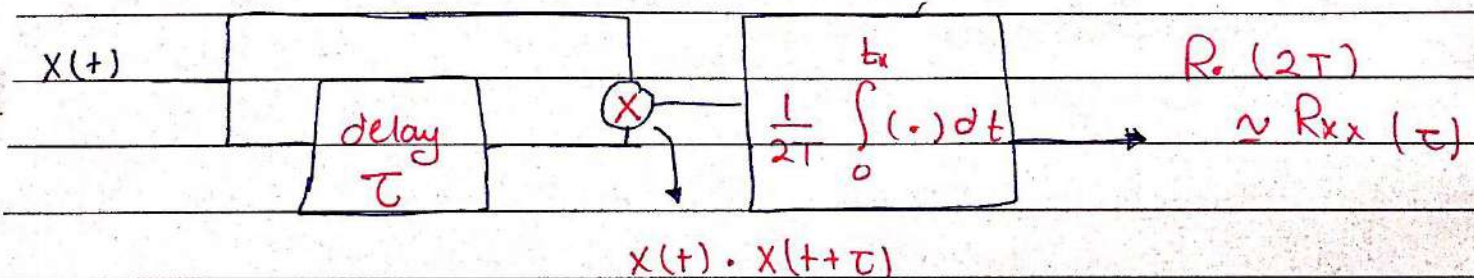 X(t)
delay
τ
X
1/2T ∫₀^{tx} (·) dt
R. (2T)
≈ Rxx (τ)
X(t) · X(t+τ)